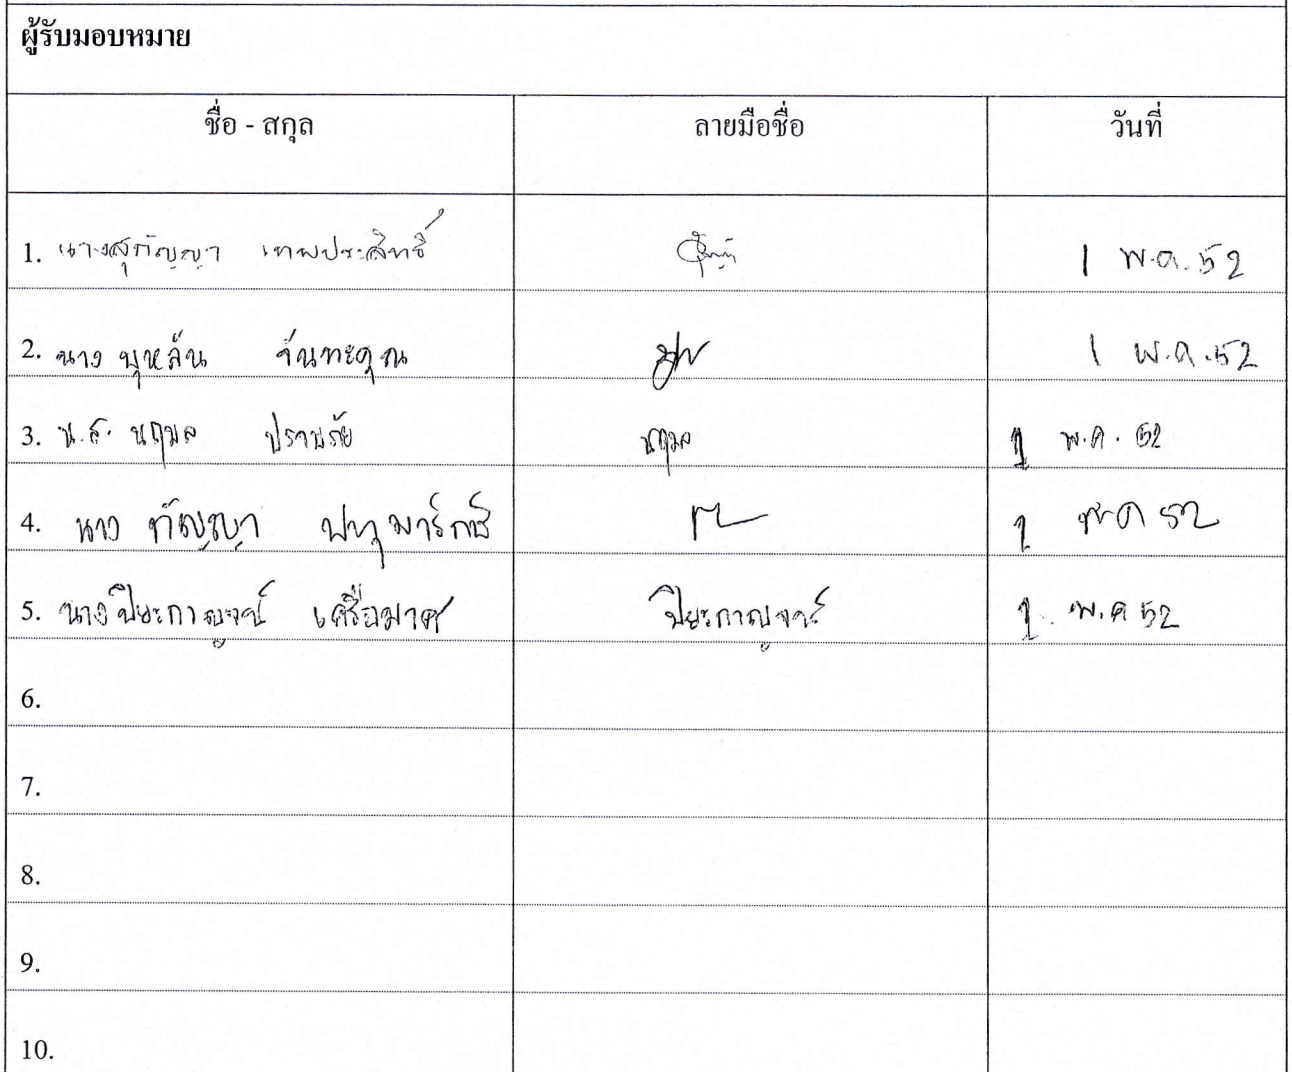 ผู้รับมอบหมาย
ชื่อ - สกุล ลายมือชื่อ วันที่
1. นางสุกัญญา เทพประสิทธิ์ 1 พ.ค. 52
2. นาง พุหลัน จันทะคุณ 1 พ.ค. 52
3. น.ส. นฤมล ปราบภัย นฤมล 1 พ.ค. 52
4. นาง กัญญา 1 พ.ค 52
5. นางปิยะกาญจน์ เครือมาศ ปิยะกาญจน์ 1. พ.ค 52
6.
7.
8.
9.
10.